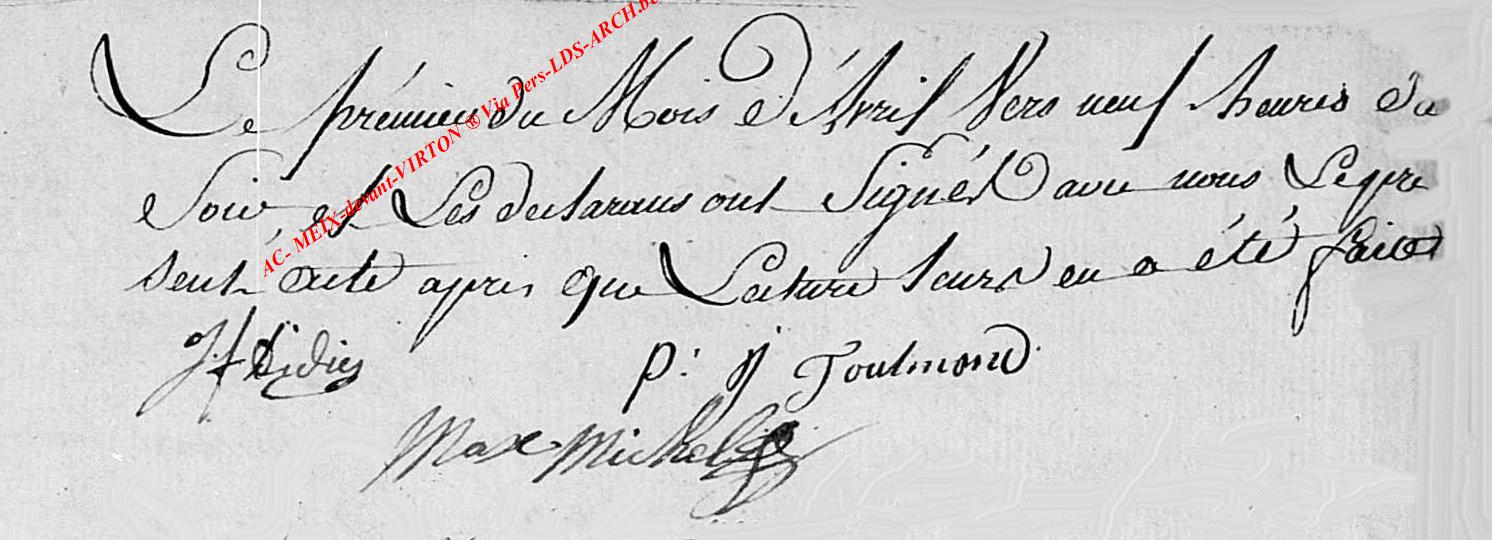 Le prémier du Mois D'Avril Vers neuf heures du
Soir, et Les declarans ont Signés avec nous Le pre
sent acte apres que Lecture leurs en a été faite
J f Didier P: J Toulmond
Max Michel
AC- MEIX-devant-VIRTON ® Via Pers-LDS-ARCH.be